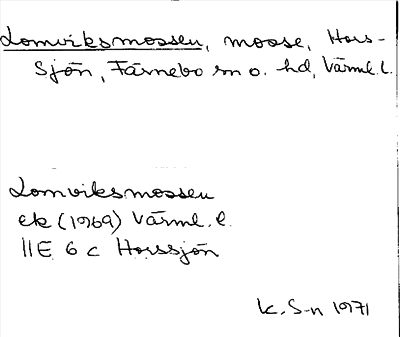 Lomviksmossen, mosse, Hors-
sjön, Färnebo sn o. hd, Värml. l.
Lomviksmossen
ek (1969) Värml. l.
11E 6 c Horssjön
K. S-n 1971